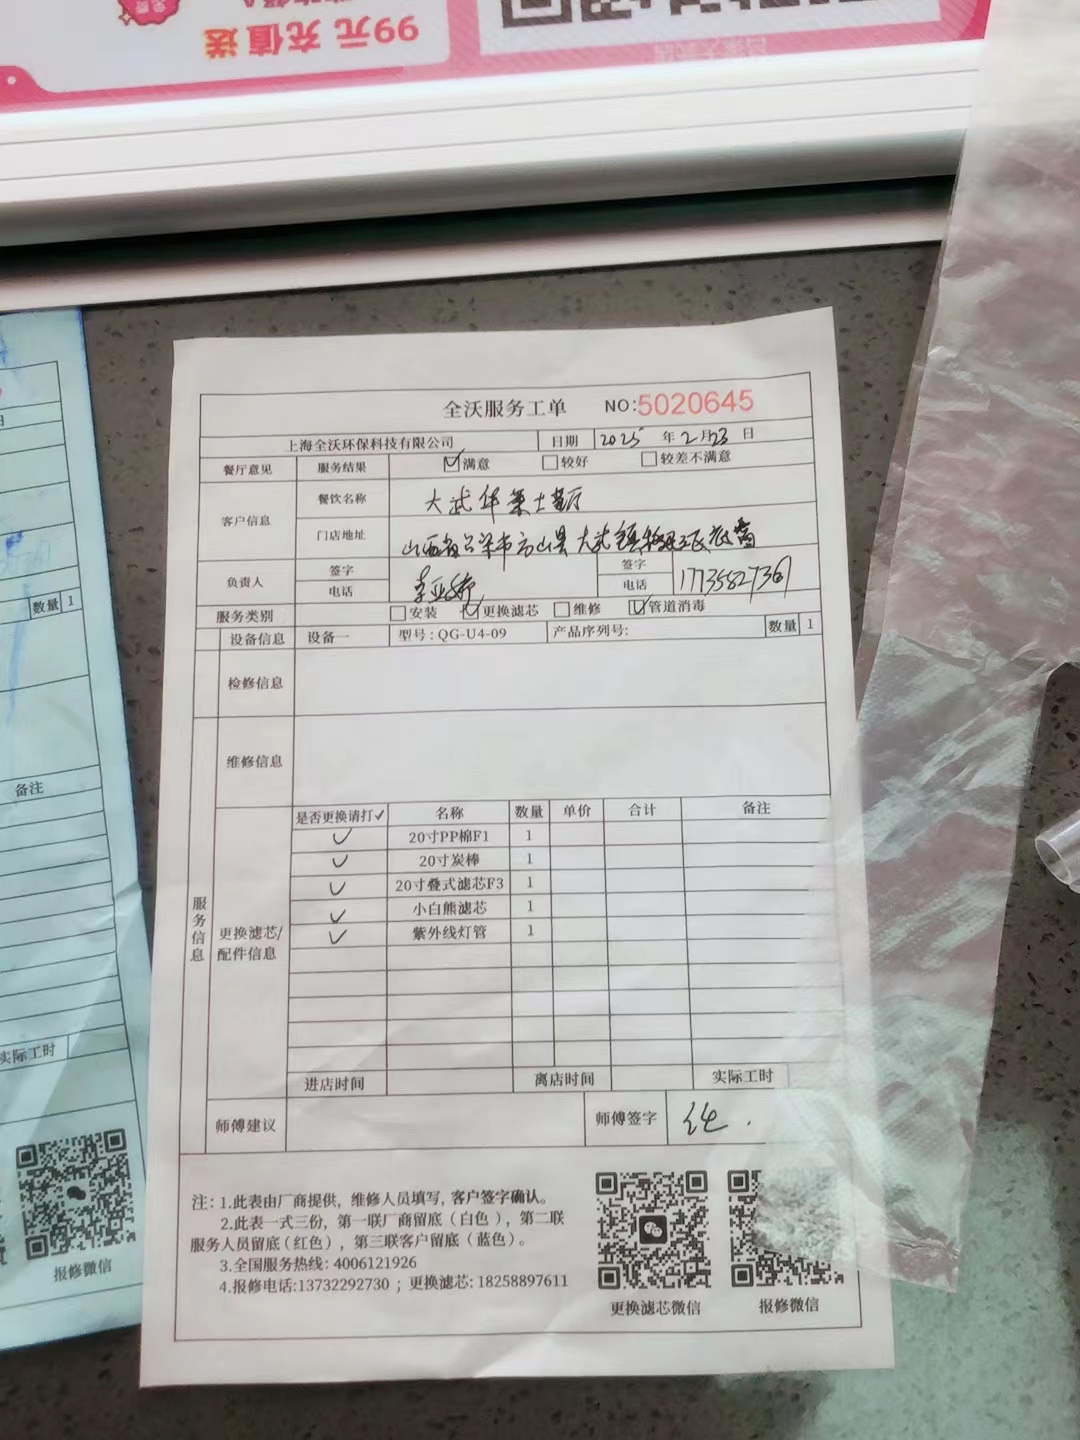 99元 充值送
全沃服务工单 NO:5020645
上海全沃环保科技有限公司 日期 2025年2月23日
餐厅意见 服务结果 ☑满意 ☐较好 ☐较差不满意
客户信息 餐饮名称 大武华莱士餐厅
门店地址 山西省吕梁市方山县大武镇
负责人 签字 签字
电话 李亚婷 电话
服务类别 ☐安装 ☑更换滤芯 ☐维修 ☑管道消毒
设备信息 设备一 型号:QG-U4-09 产品序列号: 数量 1
检修信息
维修信息
服务信息
更换滤芯/配件信息
是否更换请打✓ 名称 数量 单价 合计 备注
✓ 20寸PP棉F1 1
✓ 20寸炭棒 1
✓ 20寸叠式滤芯F3 1
✓ 小白熊滤芯 1
✓ 紫外线灯管 1
进店时间 离店时间 实际工时
师傅建议 师傅签字
注: 1.此表由厂商提供, 维修人员填写, 客户签字确认。
2.此表一式三份, 第一联厂商留底(白色), 第二联
服务人员留底(红色), 第三联客户留底(蓝色)。
3.全国服务热线: 4006121926
4.报修电话:13732292730 ; 更换滤芯: 18258897611
更换滤芯微信 报修微信
数量 1
备注
实际工时
报修微信